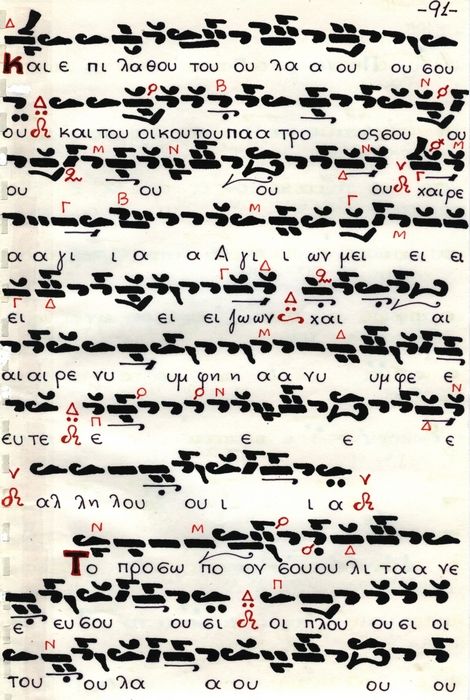 -91-
Και ε πι λαθου του ου λα α ου ου σου
ου και του οι κου του πα α τρο ος σου ου
ου ου ου ου χαι ρε
α α γι ι α α Α γι ι ι ων μει ει ει
ει ει ει ζω ων χαι αι
αι αι ρε νυ υμ φη η α α νυ υμ φε ε
ευ τε ε ε ε ε
αλ λη λου ου ι ι α
Το προσω πο ον σου ου λι τα α νε
ε ευ σου ου σι οι πλου ου σι οι
του ου λα α ου ου ου